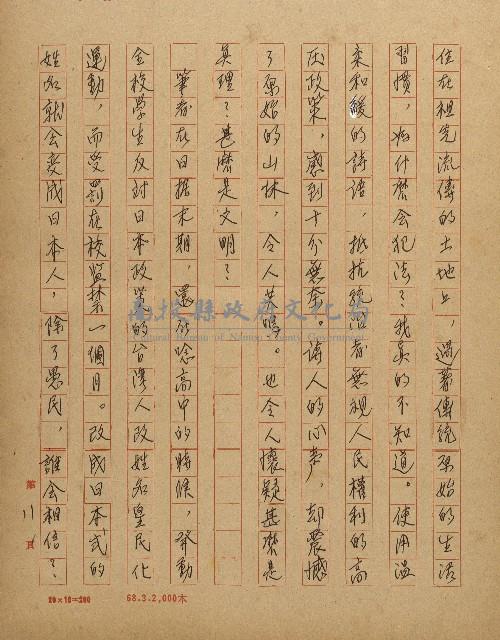 住在祖先流傳的土地上，過著傳統原始的生活
習慣，為什麼會犯法？我真的不知道。使用溫
柔和緩的詩語，抵抗統治者無視人民權利的高
壓政策，感到十分無奈。詩人的心聲，却震憾
了原始的山林，令人黃昏。也令人懷疑甚麼是
真理？甚麼是文明？
筆者在日據末期，還在唸高中的時候，發動
全校學生反對日本政策的台灣人改姓名皇民化
運動，而受罰在校監禁一個月。改成日本式的
姓名就會變成日本人，除了愚民，誰會相信？
第 八 頁
20×10=200
68.3.2,000本
南投縣政府文化局
Cultural Bureau of Nantou County Government